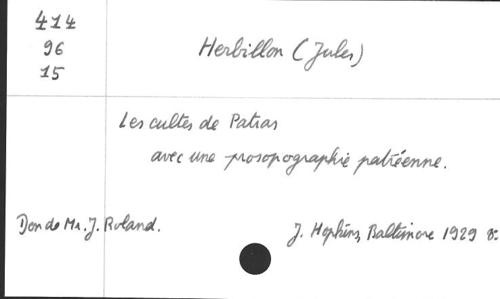 414
96
15
Herbillon (Jules)
Les cultes de Patras
avec une prosopographie patréenne.
Don de Mr. J. Roland.
J. Hopkins, Baltimore 1929 8: